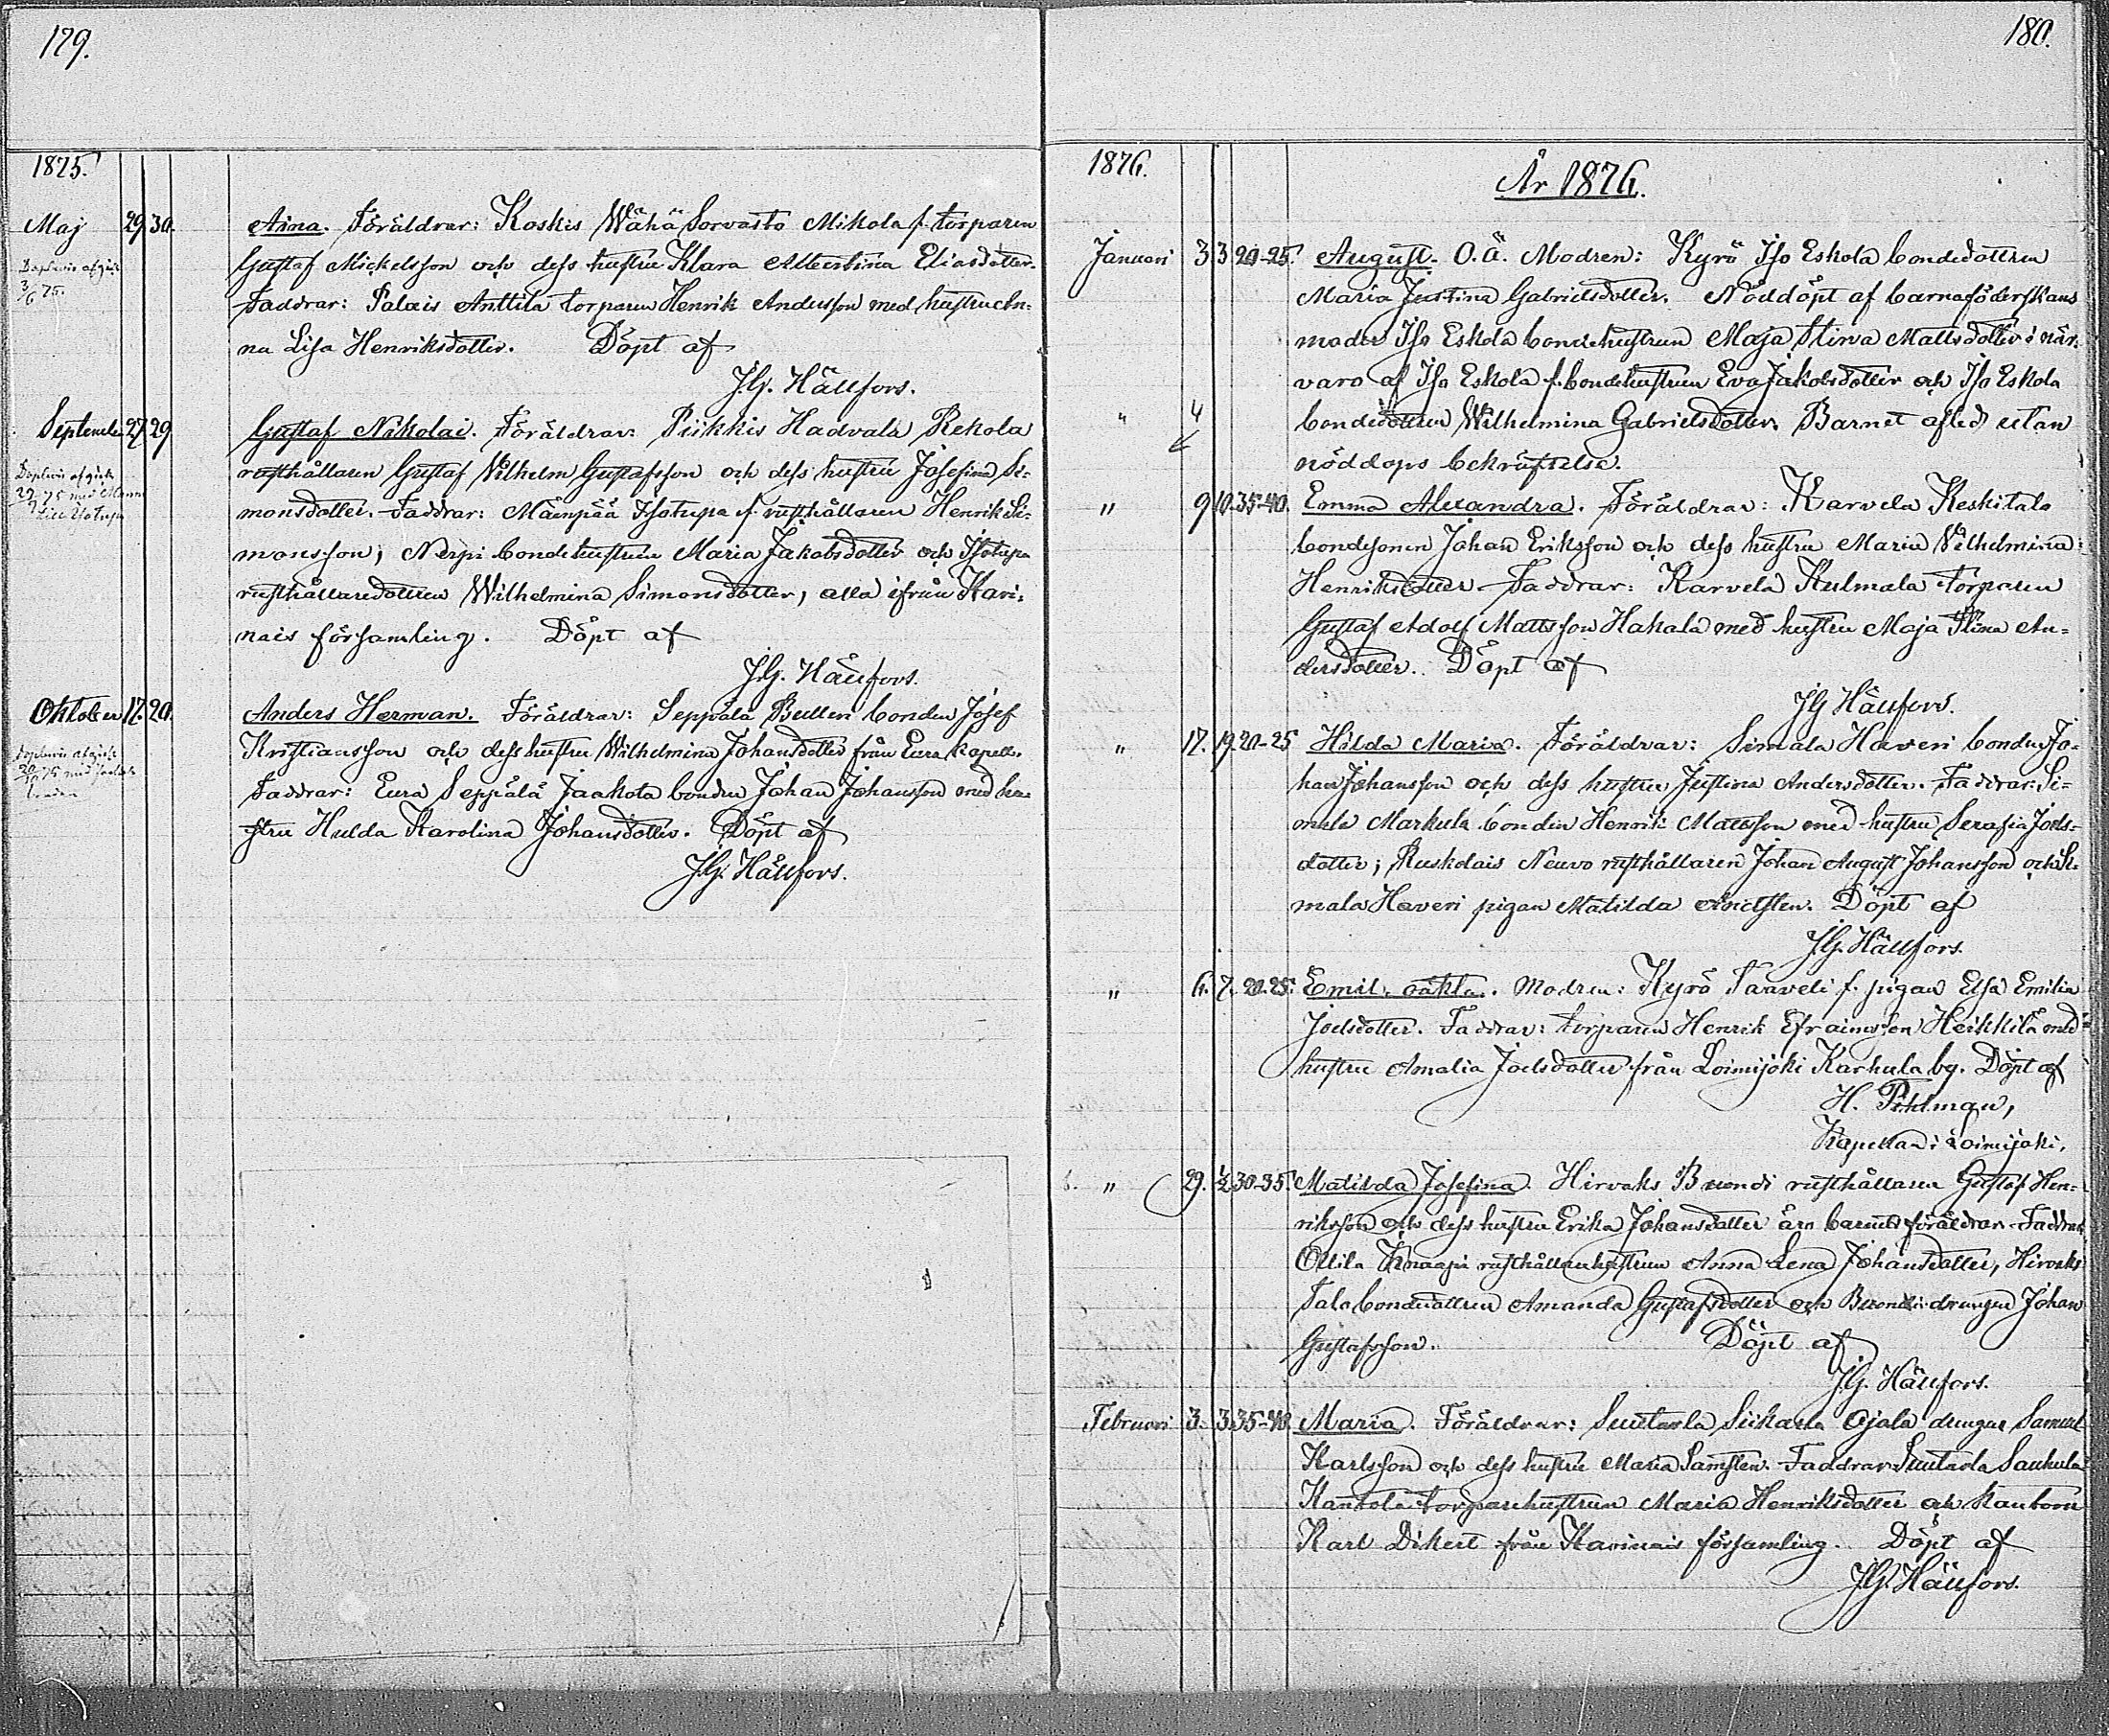 179.
1875.
Maj 29. 30. Aina. Föräldrar: Koskis Wähä Sorvasto Mikola f. torparen
Dopbevis afgick
3/6 75.
Gustaf Mickelsson och dess hustru Klara Albertina Eliasdotter.
Faddrar: Palais Anttila torparen Henrik Andersson med hustru An-
na Lisa Henriksdotter. Döpt af
J.G. Hällfors.
September 27. 29. Gustaf Nikolai. Föräldrar: Piikkis Hadvala Rekola
rusthållaren Gustaf Wilhelm Gustafsson och dess hustru Josefina Si-
Dopbevis afgick
29/9 75 med
Isotupa
monsdotter. Faddrar: Mäenpää Isotupa f. rusthållaren Henrik Si-
monsson; Nerpi bondehustrun Maria Jakobsdotter och Isotupa
rusthållaredottren Wilhelmina Simonsdotter, alla ifrån Kari-
nais församling. Döpt af
J.G. Hällfors.
Oktober 17. 20. Anders Herman. Föräldrar: Seppälä Bulleri bonden Josef
Dopbevis afgick
20/10 75 med
bonden
Kristiansson och dess hustru Wilhelmina Johansdotter från Eura kapell.
Faddrar: Eura Seppälä Jaakola bonden Johan Johansson med hu-
stru Hulda Karolina Johansdotter. Döpt af
J.G. Hällfors.
180.
1876.
År 1876.
Januari 3 3 20-25. August. O.Ä. Modren: Kyrö Iso Eskola bondedottren
Maria Justina Gabrielsdotter. Nöddöpt af barnaföderskans
moder Iso Eskola bondehustrun Maja Stina Mattsdotter i när-
varo af Iso Eskola f. bondehustrun Eva Jakobsdotter och Iso Eskola
" 4 bondedottren Wilhelmina Gabrielsdotter. Barnet afled utan
nöddops bekräftelse.
" 9 10. 35-40. Emma Alexandra. Föräldrar: Karvela Keskitalo
bondesonen Johan Eriksson och dess hustru Maria Wilhelmina
Henriksdotter. Faddrar: Karvela Kulmala torparen
Gustaf Adolf Mattsson Hakala med hustru Maja Stina An-
dersdotter. Döpt af
J.G. Hällfors.
" 17. 19. 20-25 Hilda Maria. Föräldrar: Simala Haveri bonden Jo-
han Johansson och dess hustru Justina Andersdotter. Faddrar: Si-
mala Markula bonden Henrik Mattsson med hustru Serafia Joels-
dotter; Ruskolais Neuvo rusthållaren Johan August Johansson och Si-
mala Haveri pigan Matilda. Döpt af
J.G. Hällfors.
" 6. 7. 20-25. Emil, oäkta. Modren: Kyrö Taaveli f. pigan Elsa Emilia
Joelsdotter. Faddrar: torparen Henrik Efraimsson Heikkilä med
hustru Amalia Joelsdotter från Loimijoki Karhula by. Döpt af
H. Pihlman,
Kapellan i Loimijoki.
" 29. 1/2 30-35. Matilda Josefina. Hirvaks Buondi rusthållaren Gustaf Hen-
riksson och dess hustru Erika Johansdotter äro barnets föräldrar. Faddrar
Ollila Knaapi rusthållarehustrun Anna Lena Johansdotter, Hirvaks
Talo bondedottren Amanda Gustafsdotter och Buondi drängen Johan
Gustafsson. Döpt af
J.G. Hällfors.
Februari 3. 3. 35-40. Maria. Föräldrar: Suutarla Siikarla Ojala drängen Samuel
Karlsson och dess hustru Maria Samsten. Faddrar: Suutarla Saukula
Kantola torparehustrun Maria Henriksdotter och kantorn
Karl Dikert från Karinais församling. Döpt af
J.G. Hällfors.